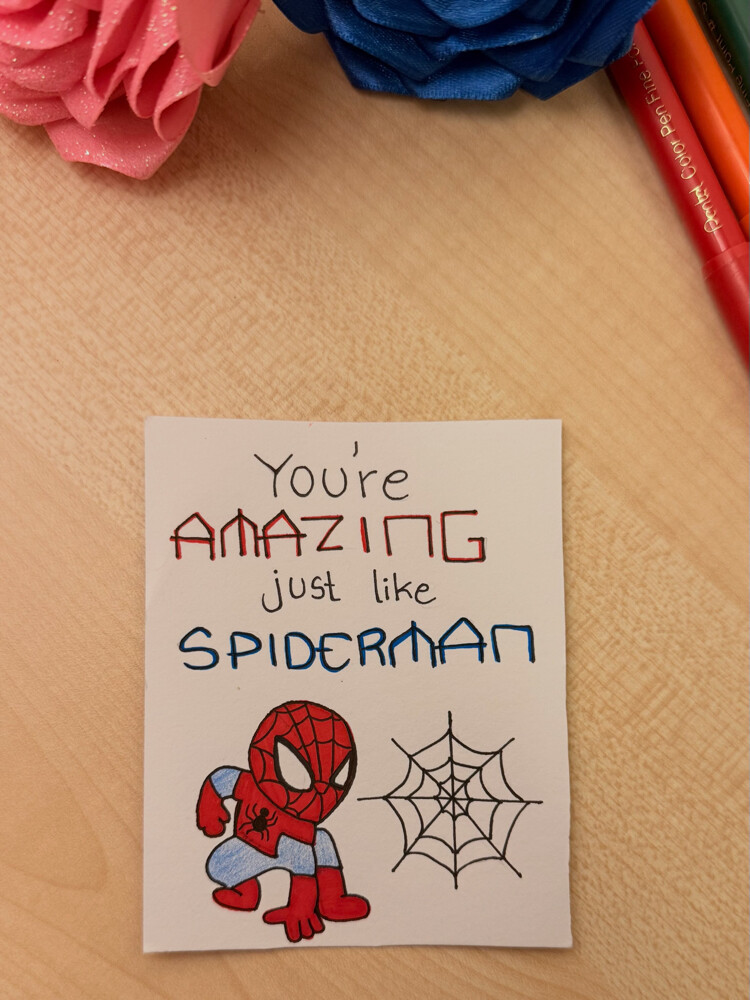 You're
AMAZING
just like
SPIDERMAN
Pentel Color Pen Fine